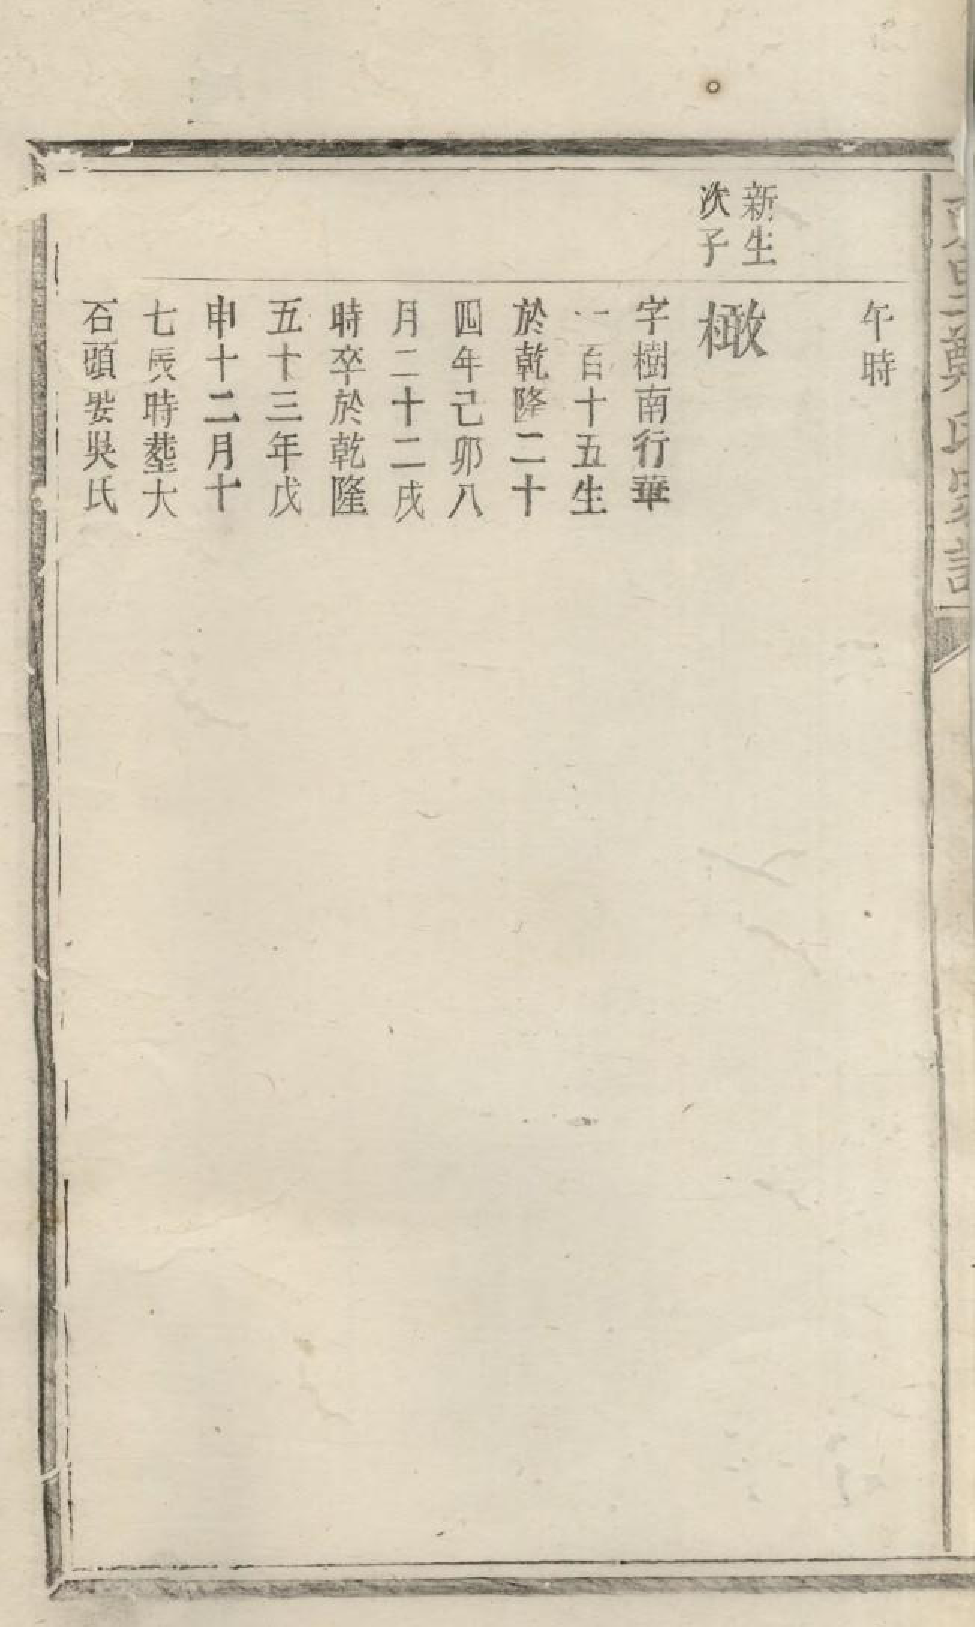 午時
新生
次子
橄
字樹南行華
一百十五生
於乾隆二十
四年己卯八
月二十二戌
時卒於乾隆
五十三年戊
申十二月十
七辰時塟大
石頭娶吳氏